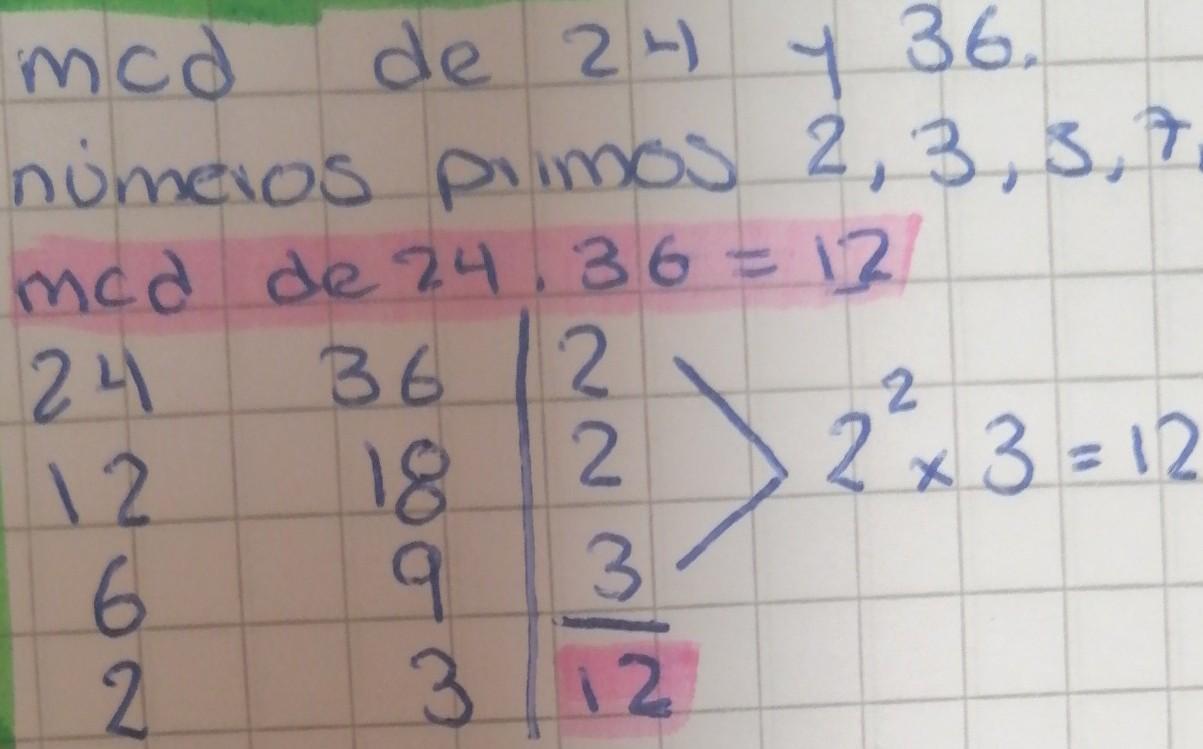 mcd de 24 y 36.
números primos 2, 3, 5, 7,
mcd de 24. 36 = 12
24 36 | 2
12 18 | 2 2² x 3 = 12
6 9 | 3
2 3 | 12